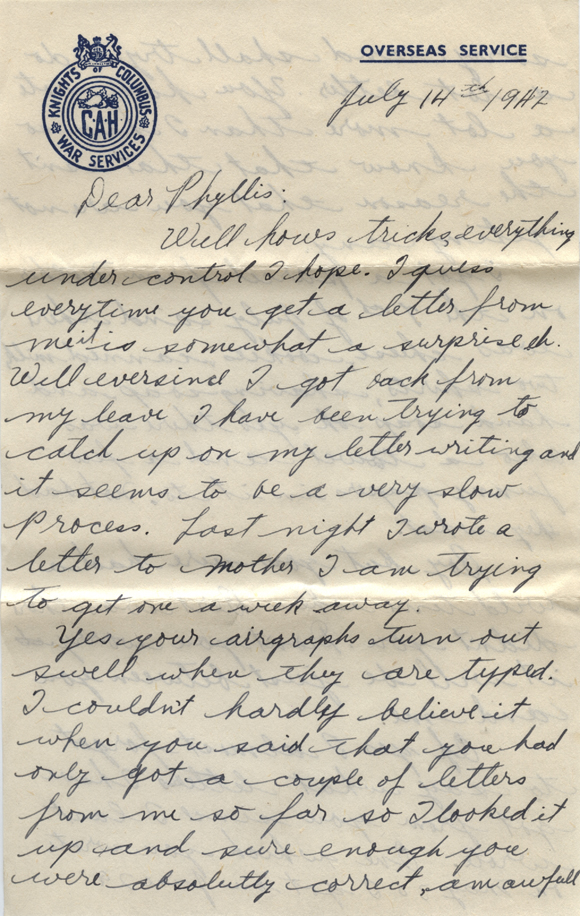 OVERSEAS SERVICE
KNIGHTS OF COLUMBUS
CAH
WAR SERVICES
July 14th 1942
Dear Phyllis:
Well hows tricks, everything
under control I hope. I guess
everytime you get a letter from
me it is somewhat a surprise eh.
Well eversince I got back from
my leave I have been trying to
catch up on my letter writing and
it seems to be a very slow
Process. Last night I wrote a
letter to Mother I am trying
to get one a week away.
Yes your airgraphs turn out
swell when they are typed.
I couldn't hardly believe it
when you said that you had
only got a couple of letters
from me so far so I looked it
up and sure enough you
were absolutly correct, am awfull